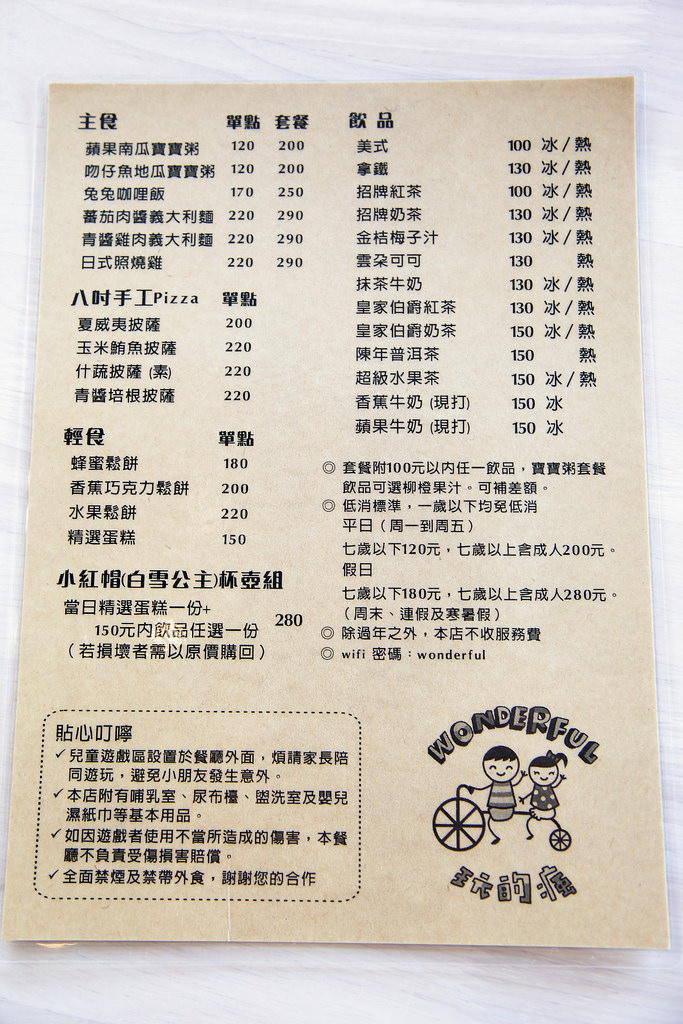 主食 單點 套餐
蘋果南瓜寶寶粥 120 200
吻仔魚地瓜寶寶粥 120 200
兔兔咖哩飯 170 250
蕃茄肉醬義大利麵 220 290
青醬雞肉義大利麵 220 290
日式照燒雞 220 290
八吋手工Pizza 單點
夏威夷披薩 200
玉米鮪魚披薩 220
什蔬披薩 (素) 220
青醬培根披薩 220
輕食 單點
蜂蜜鬆餅 180
香蕉巧克力鬆餅 200
水果鬆餅 220
精選蛋糕 150
小紅帽(白雪公主)杯壺組
當日精選蛋糕一份+
150元內飲品任選一份 280
（若損壞者需以原價購回）
飲品
美式 100 冰/熱
拿鐵 130 冰/熱
招牌紅茶 100 冰/熱
招牌奶茶 130 冰/熱
金桔梅子汁 130 冰/熱
雲朵可可 130 熱
抹茶牛奶 130 冰/熱
皇家伯爵紅茶 130 冰/熱
皇家伯爵奶茶 150 冰/熱
陳年普洱茶 150 熱
超級水果茶 150 冰/熱
香蕉牛奶 (現打) 150 冰
蘋果牛奶 (現打) 150 冰
◎ 套餐附100元以內任一飲品，寶寶粥套餐
飲品可選柳橙果汁。可補差額。
◎ 低消標準，一歲以下均免低消
平日（周一到周五）
七歲以下120元，七歲以上含成人200元。
假日
七歲以下180元，七歲以上含成人280元。
（周末、連假及寒暑假）
◎ 除過年之外，本店不收服務費
◎ wifi 密碼：wonderful
貼心叮嚀
✓兒童遊戲區設置於餐廳外面，煩請家長陪
同遊玩，避免小朋友發生意外。
✓本店附有哺乳室、尿布檯、盥洗室及嬰兒
濕紙巾等基本用品。
✓如因遊戲者使用不當所造成的傷害，本餐
廳不負責受傷損害賠償。
✓全面禁煙及禁帶外食，謝謝您的合作
WONDERFUL
玩的瘋